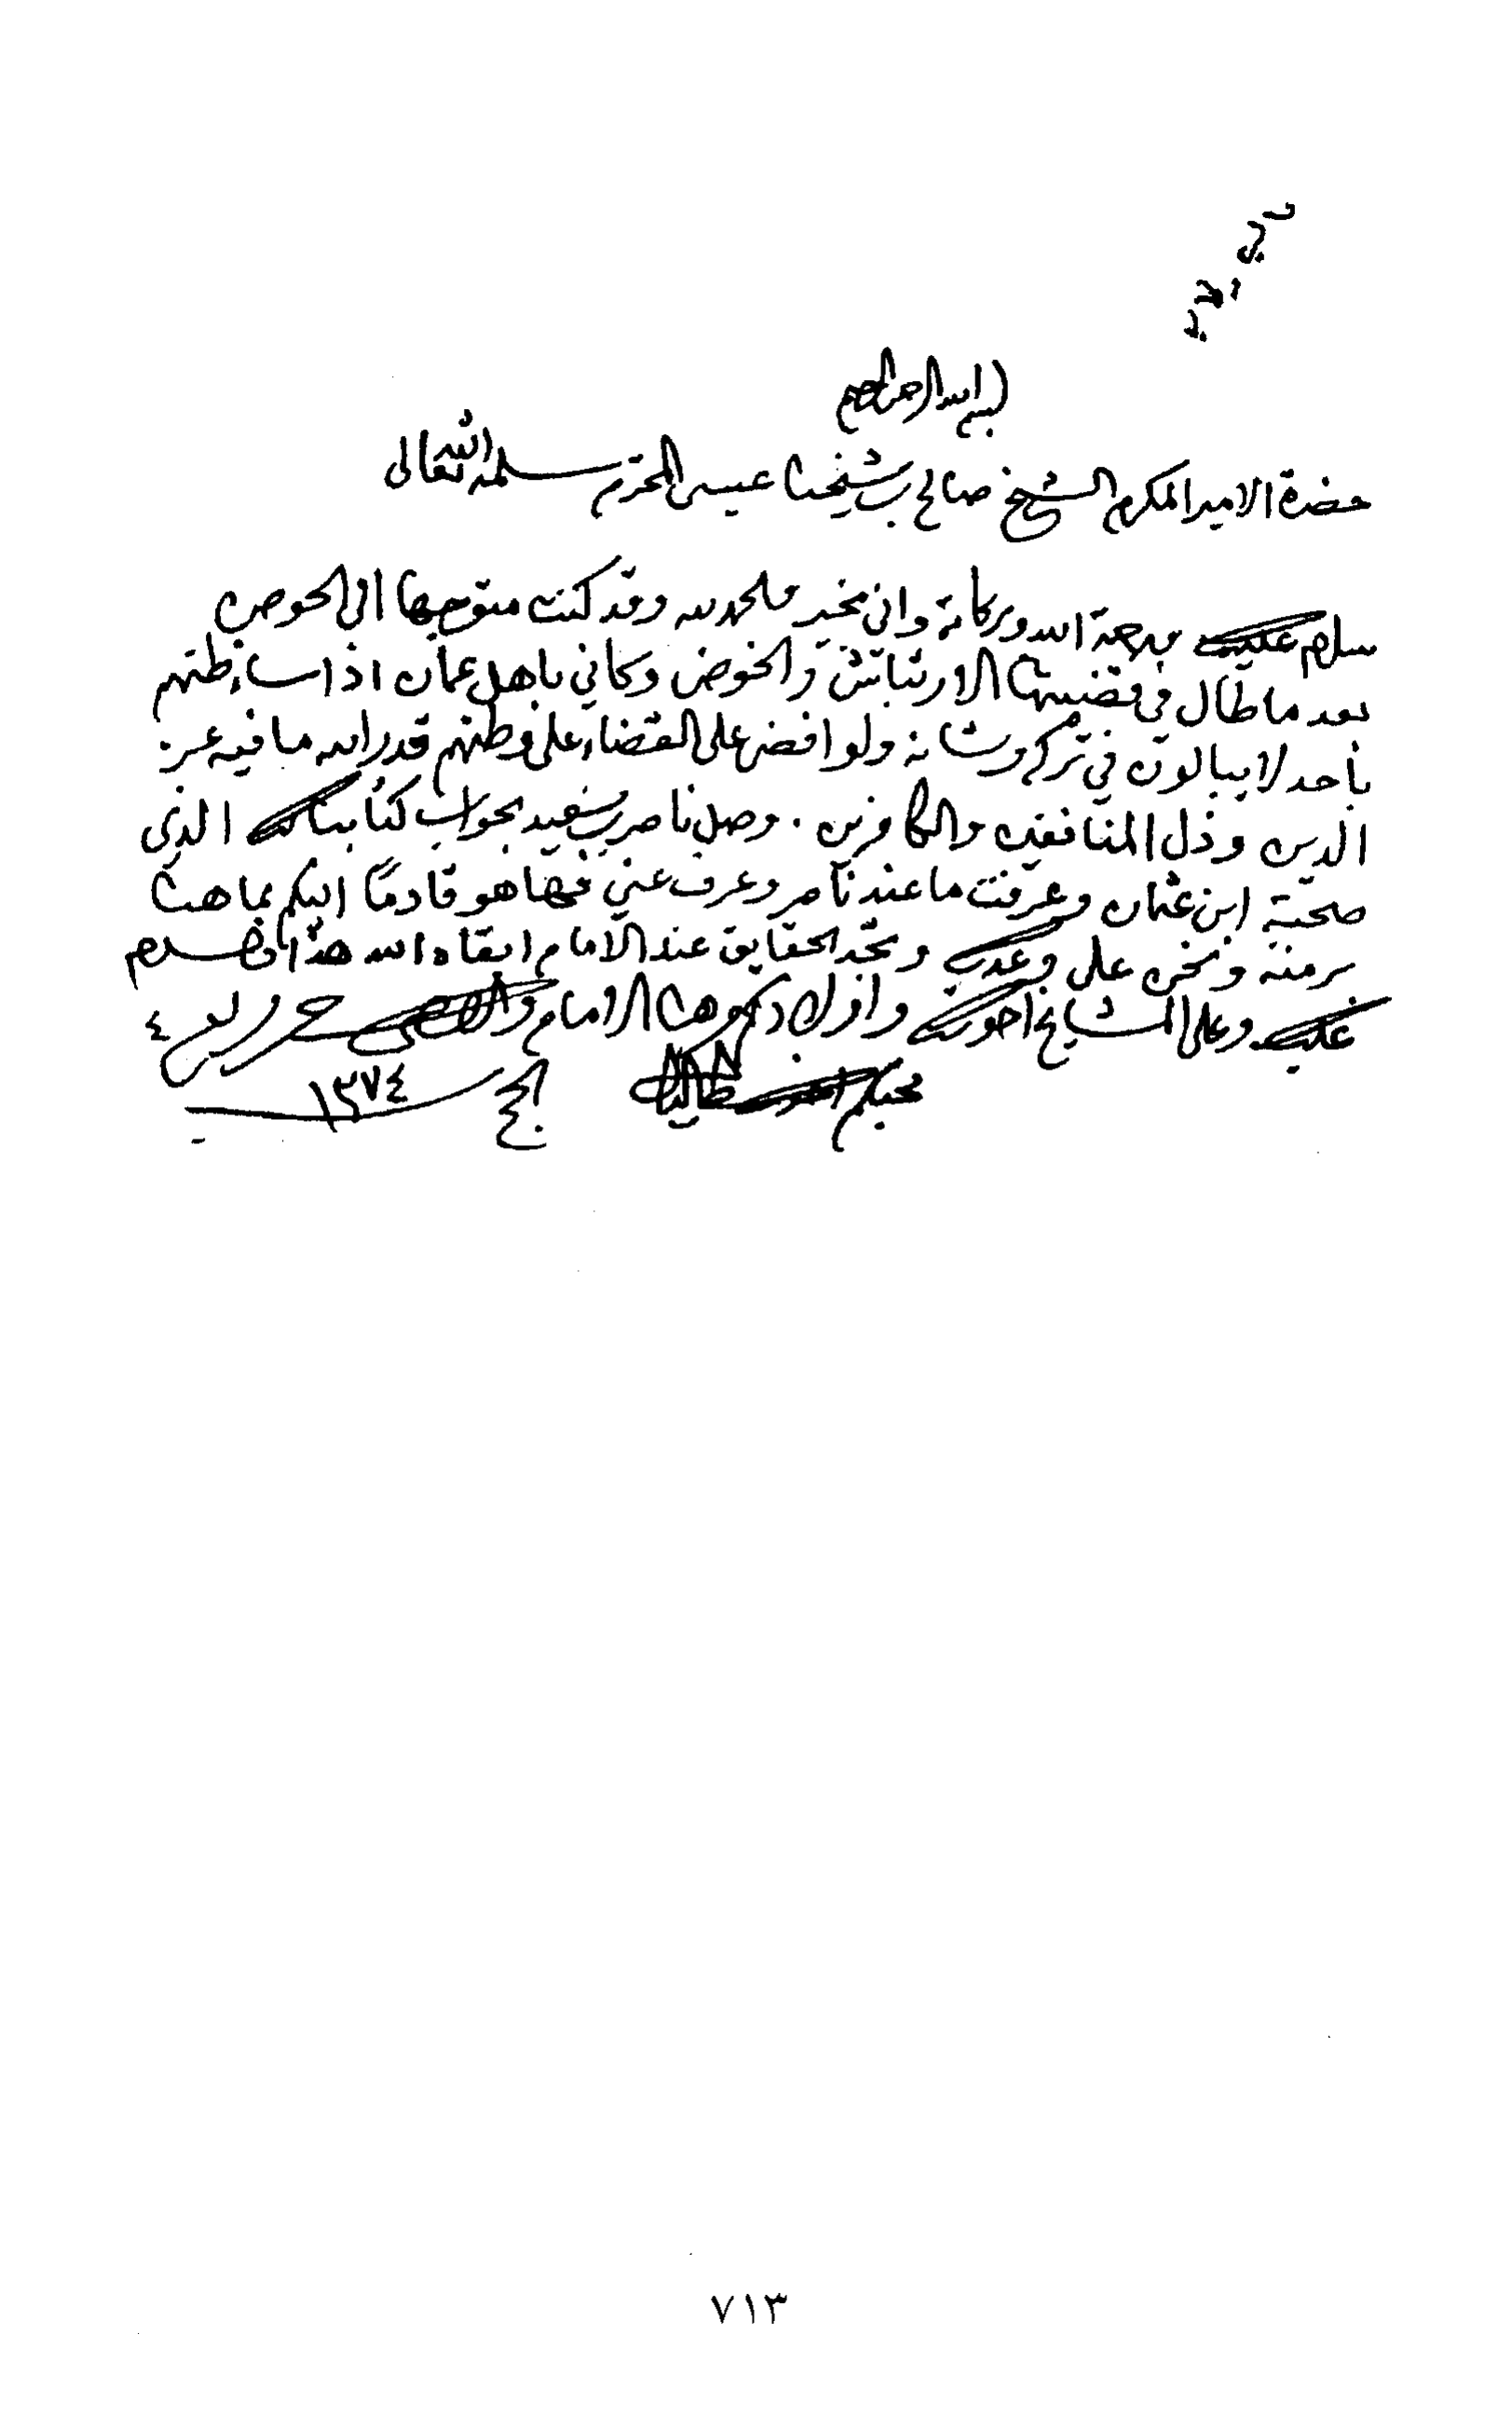 بسم الله الرحمن الرحيم
حضرة الامير المكرم الشيخ صالح بن شيخنا عيسى المحترم سلمه الله تعالى
سلام عليك ورحمة الله وبركاته واني بخير والحمد لله وقد كنت متوجها الى الحوض
بعد ما طال في قضيتها الارتباش والخوض وكاني باهل عمان اذا ساء ظنهم
باحد لا يبالون في تركه وشانه ولو افضى على القضاء على وطنهم قدر الله ما فيه عز
الدين وذل المنافقين والكافرين . وصل ناصر بن سعيد بجواب كتابينا لك الذي
صحبة ابن عثمان وعرفت ما عند ناصر وعرف عني فها هو قادما اليكم بما هنا
برمته ونحن على وعدك وتجد الحقايق عند الامام ابقاه الله هذا والسلام
عليك وعلى المشايخ اخوتك واولادك ومن هنا الامام حرر ليوم ٤
محبكم طالب الحج ١٣٧٤
٧١٣